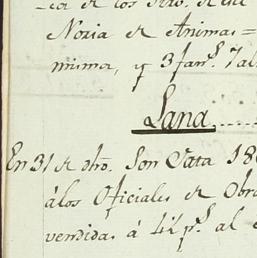 de los
Noria de Animas =
misma, y 3 fan.s 7 al
Lana
En 31 de dho. Son Cata 18
á los Oficiales de Obra
vendidas á 42 p.s al